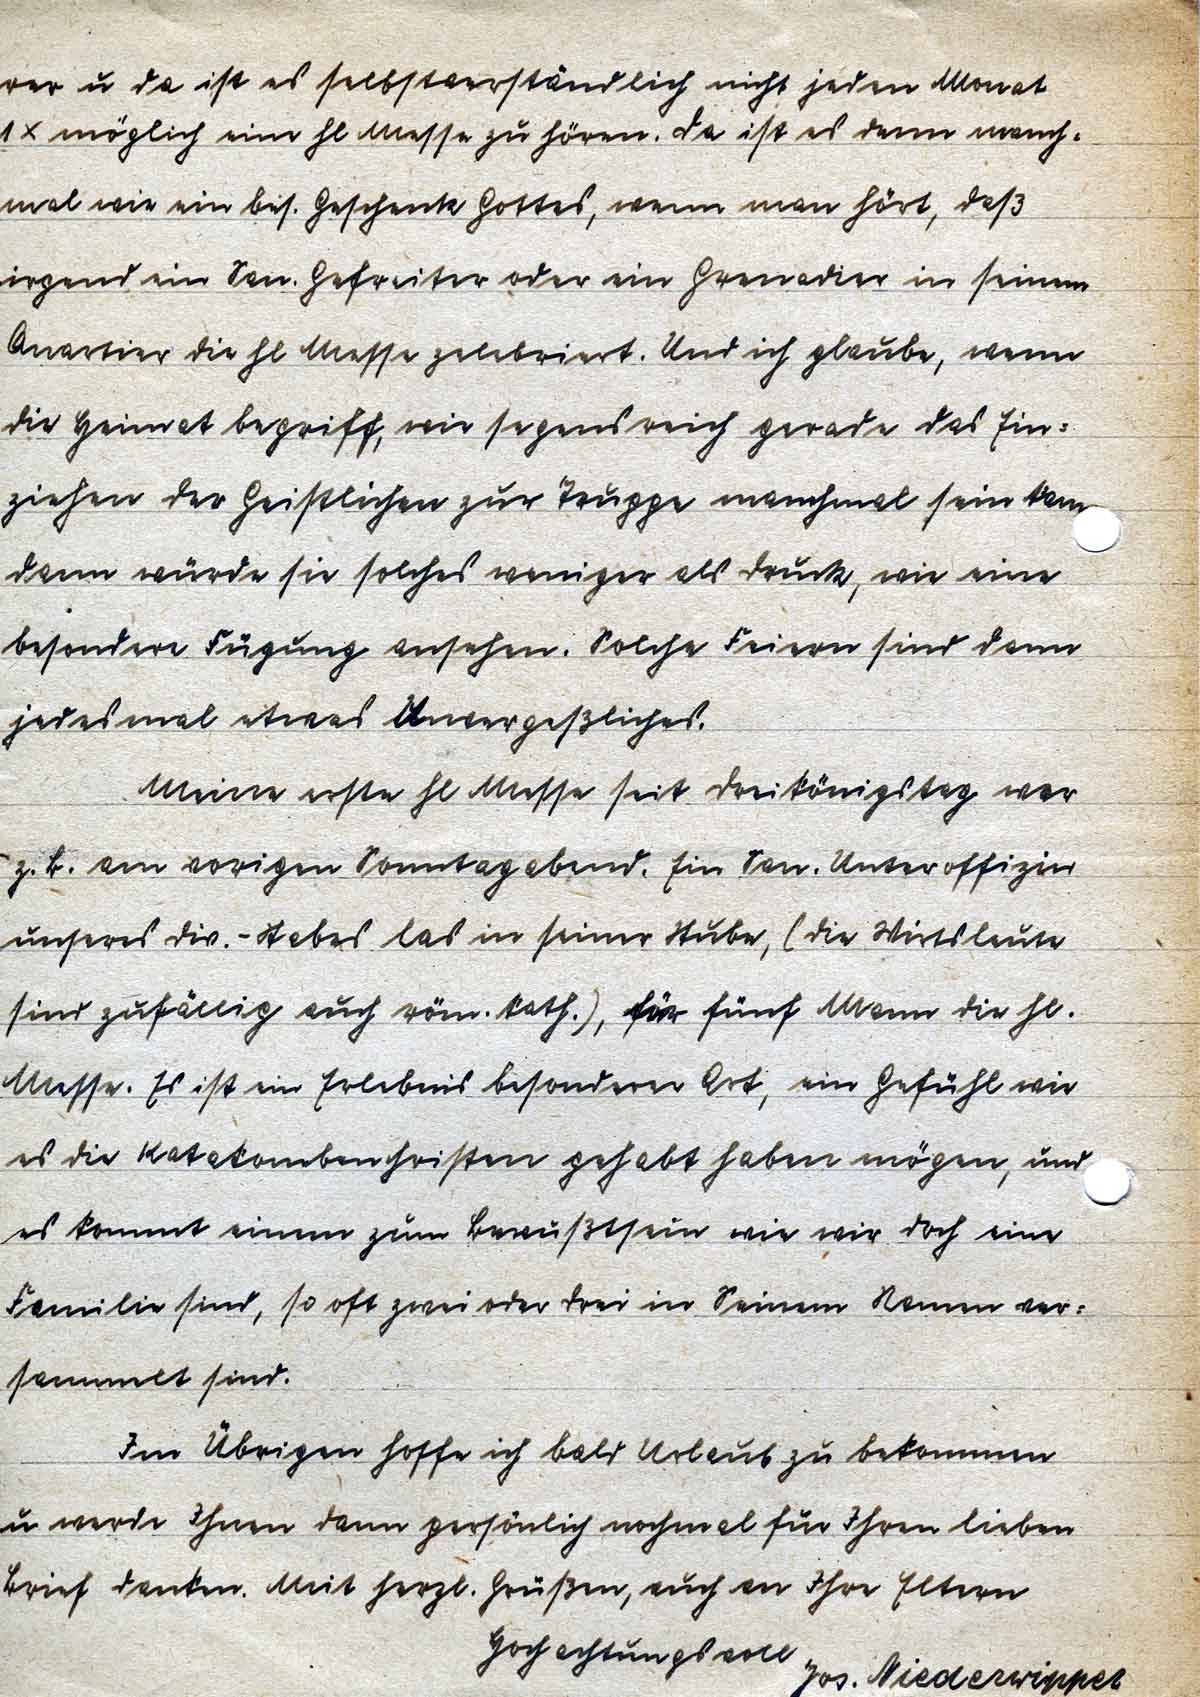 rer u da ist es selbstverständlich nicht jeden Monat
1x möglich eine hl Messe zu hören. Da ist es denn manch=
mal wie ein bes. Geschenk Gottes, wenn man hört, daß
irgend ein San. Gefreiter oder ein Grenadier in seinem
Quartier die hl Messe zelebriert. Und ich glaube, wenn
die Heimat begriff, wie segensreich gerade das Ein=
ziehen der Geistlichen zur Truppe manchmal sein kann
dann würde sie solches weniger als Druck, wie eine
besondere Fügung ansehen. Solche Feiern sind dann
jedesmal etwas Unvergeßliches.
Meine erste hl Messe seit Dreikönigstag war
z.B. am vorigen Sonntagabend. Ein San. Unteroffizier
unseres Div.-Stabes las in seiner Stube, (die Wirtsleute
sind zufällig auch röm. kath.), für fünf Mann die hl.
Messe. Es ist ein Erlebnis besonderer Art, ein Gefühl wie
es die Katakombenchristen gehabt haben mögen, und
es kommt einem zum Bewußtsein wie wir doch eine
Familie sind, so oft zwei oder drei in Seinem Namen ver=
sammelt sind.
Im Übrigen hoffe ich bald Urlaub zu bekommen
u werde Ihnen dann persönlich nochmal für Ihren lieben
Brief danken. Mit herzl. Grüßen, auch an Ihre Eltern
Hochachtungsvoll
Jos. Niederwipper